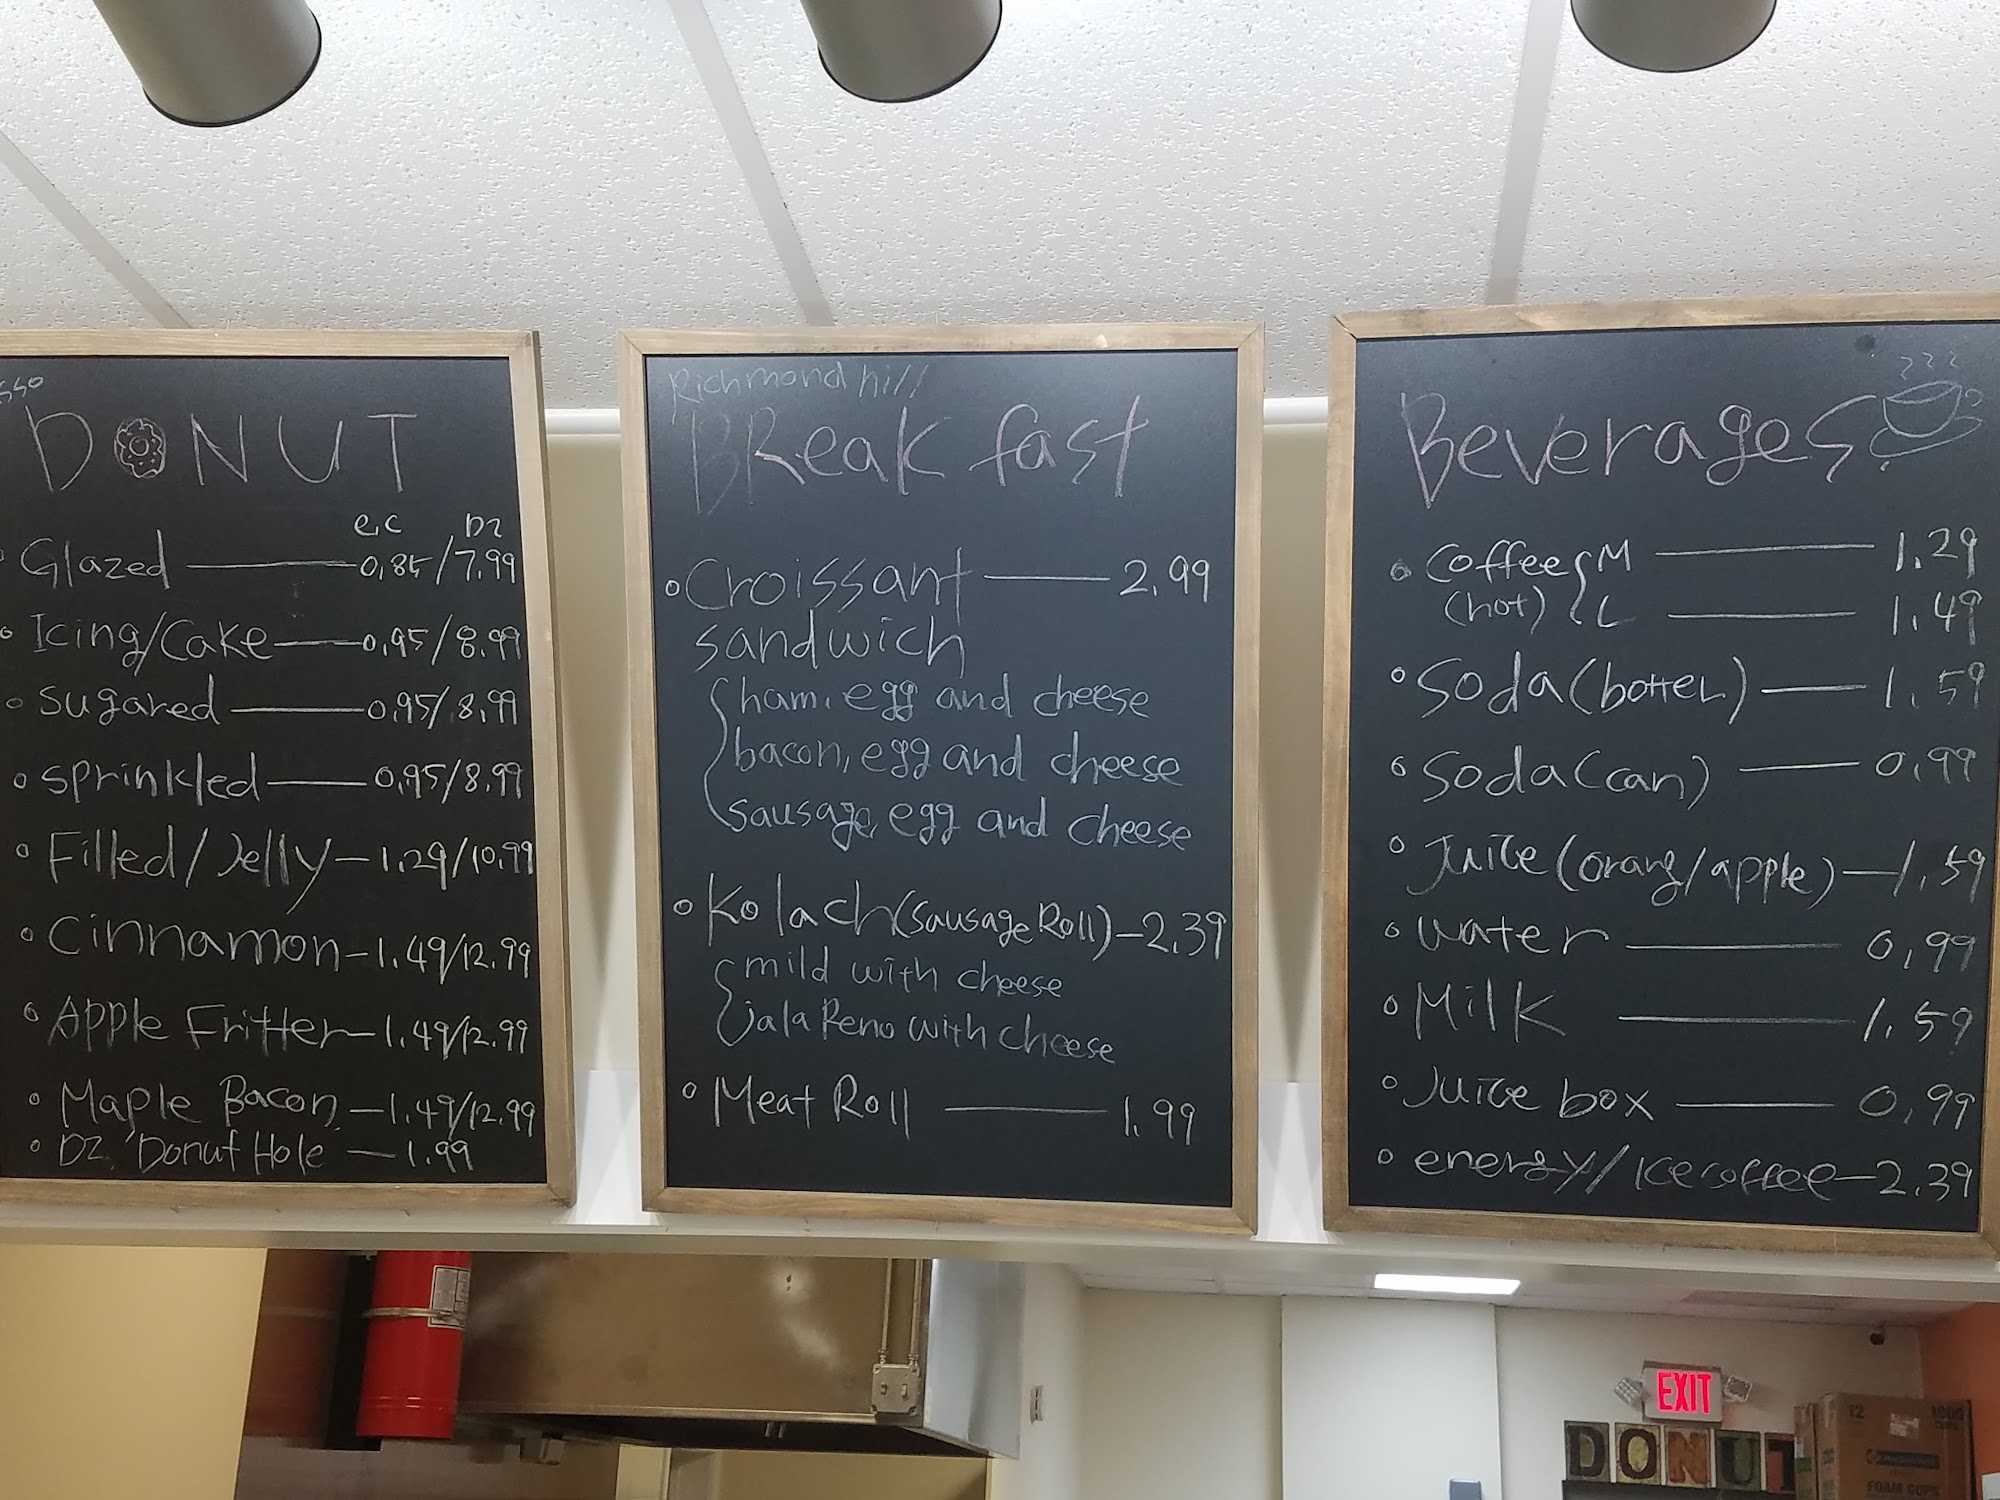 DONUT
e.c Dz
Glazed 0.85/7.99
Icing/Cake 0.95/8.99
Sugared 0.95/8.99
Sprinkled 0.95/8.99
Filled/Jelly 1.29/10.99
Cinnamon 1.49/12.99
Apple Fritter 1.49/12.99
Maple Bacon 1.49/12.99
DZ. Donut Hole 1.99
Richmond hill
BReakfast
Croissant 2.99
sandwich
ham, egg and cheese
bacon, egg and cheese
sausage, egg and cheese
Kolach (Sausage Roll) 2.39
mild with cheese
jalapeno with cheese
Meat Roll 1.99
Beverages
Coffee M 1.29
(hot) L 1.49
Soda (botteL) 1.59
Soda (can) 0.99
Juice (orang/apple) 1.59
Water 0.99
Milk 1.59
Juice box 0.99
energy/Ice coffee 2.39
EXIT
DONUT
12
FOAM CUPS